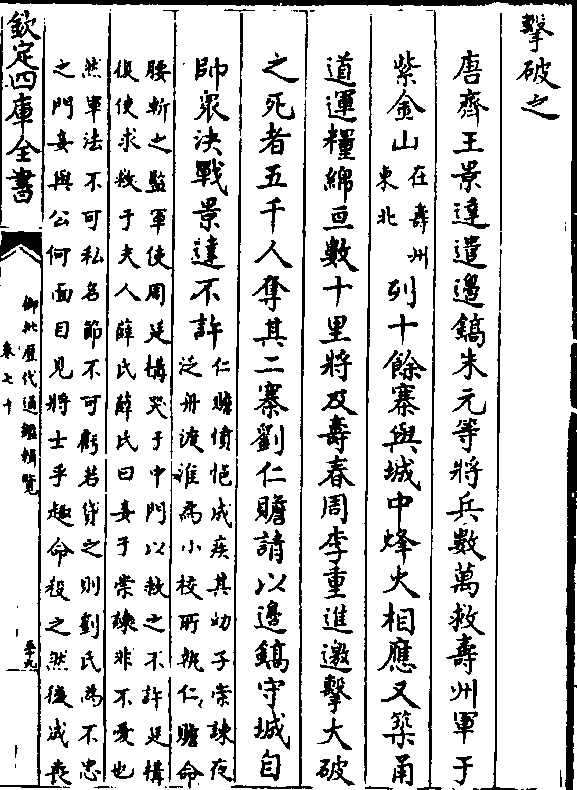 擊破之
唐齊王景達遣邊鎬朱元等將兵數萬救壽州軍于
紫金山在壽州東北列十餘寨與城中烽火相應又築甬
道運糧綿亘數十里將及壽春周李重進邀擊大破
之死者五千人奪其二寨劉仁贍請以邊鎬守城自
帥衆決戰景達不許仁贍憤悒成疾其幼子崇諫夜
泛舟渡淮為小校所執仁贍命
腰斬之監軍使周廷構哭于中門以救之不許廷構
復使求救于夫人薛氏薛氏曰妾于崇諫非不愛也
然軍法不可私名節不可虧若貸之則劉氏為不忠
之門妾與公何面目見將士乎趣命殺之然後成喪
欽定四庫全書
御批歷代通鑑輯覽
卷七十